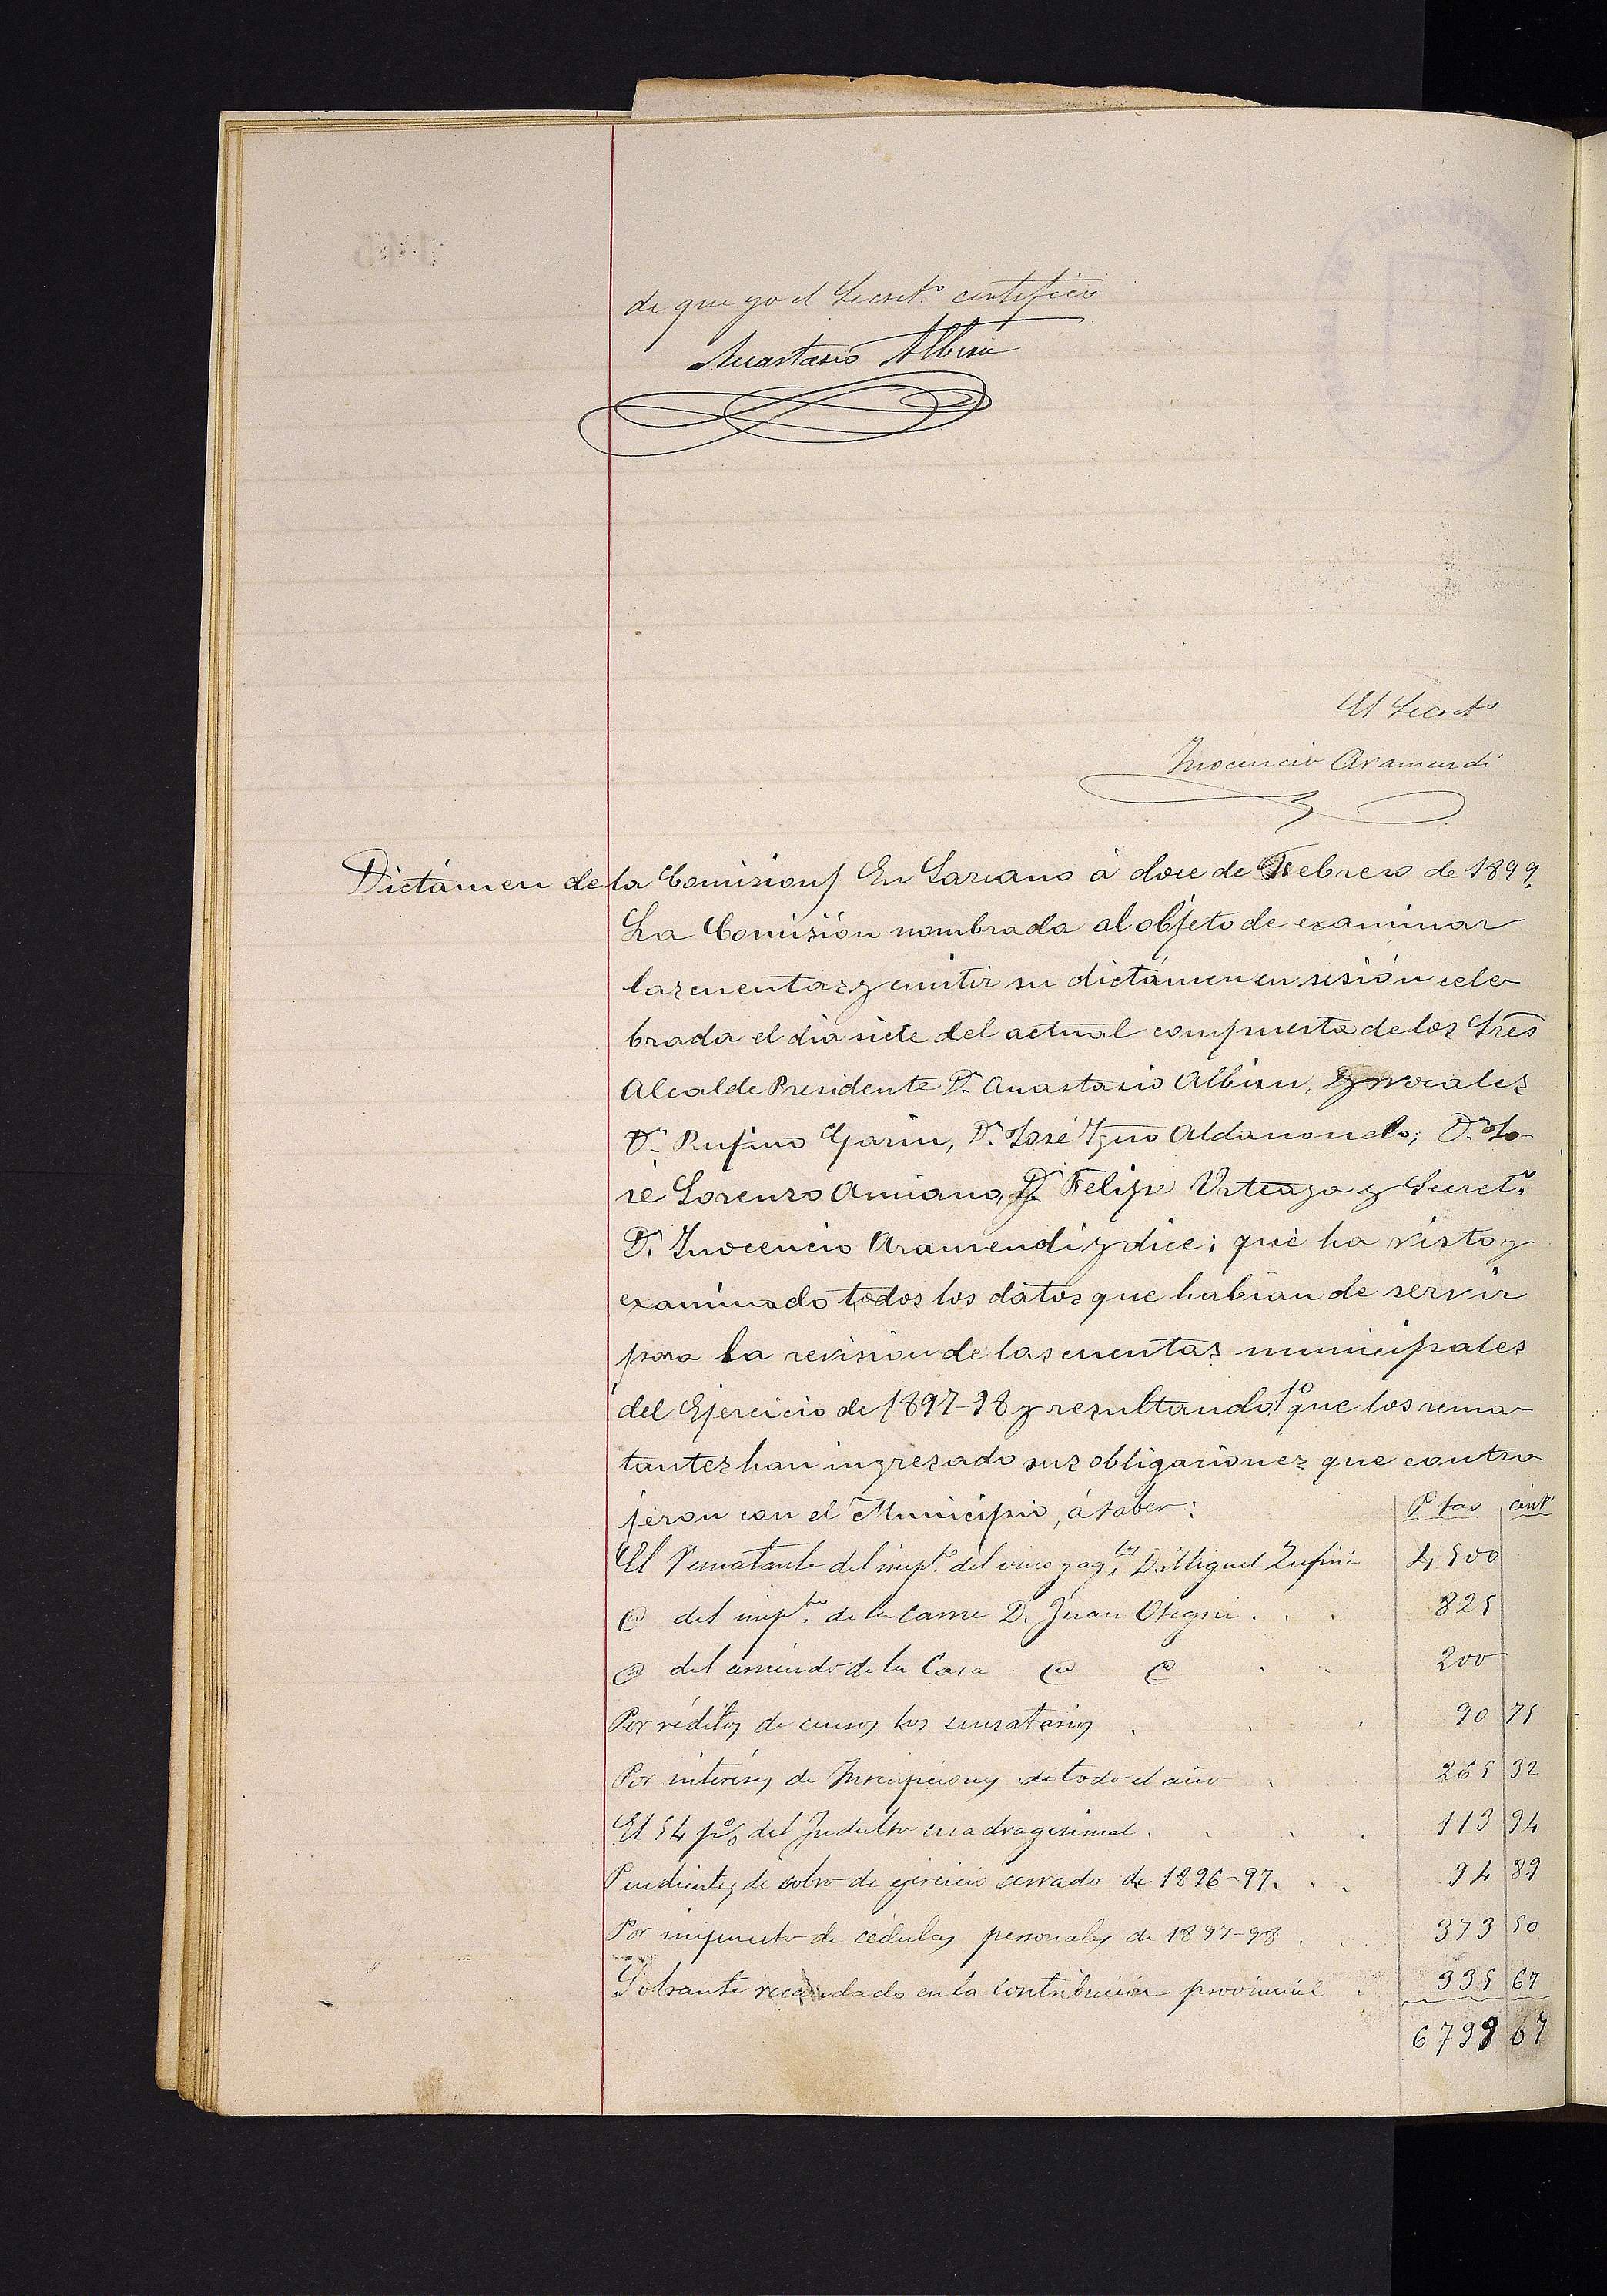 de que yo el Secret.º certifico
Anastasio Albisu
El Secret.º
Inocencio Aramendi
Dictámen de la Comision/ En Lazcano á doce de Febrero de 1899.
La Comisión nombrada al objeto de examinar
las cuentas y emitir su dictámen en sesión cele
brada el dia siete del actual compuesta de los Sres
Alcalde Presidente D. Anastasio Albisu, y vocales
D.n Rufino Garin, D.n José Ig.no Aldanondo; D.n Jo-
sé Lorenzo Amiano, D. Felipe Urteaga y Secret.º
D.n Inocencio Aramendi y dice; qué ha visto y
examinado todos los datos que habian de servir
para la revision de las cuentas municipales
del Ejercicio de 1897-98 y resultando: 1º que los rema-
tantes han ingresado sus obligaciones que contra
jeron con el Municipio, á saber: Ptas cent.s
El Rematante del imp.to del vino y ag.tes D. Miguel 4,500
@ del imp.to de la Carne D. Juan Otegui . . . 825
@ del arriendo de la Casa @ @ . . 200
Por réditos de censos los censatarios . . . 90 75
Por intereses de Inscripciones de todo el año . 265 32
El 54 p% del Indulto cuadragesimal . . . . 113 94
Pendientes de cobro de ejercicio cerrado de 1896-97. . . 94 89
Por impuesto de cédulas personales de 1897-98 . 373 50
Sobrante recaudado en la Contribución provincial . 335 67
6799 67